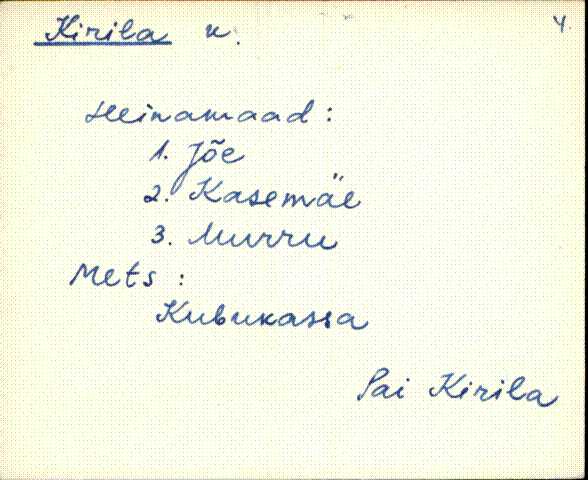 Kirila k. 4.
Heinamaad:
1. Jõe
2. Kasemäe
3. Murru
Mets:
Kubukassa
Pai Kirila